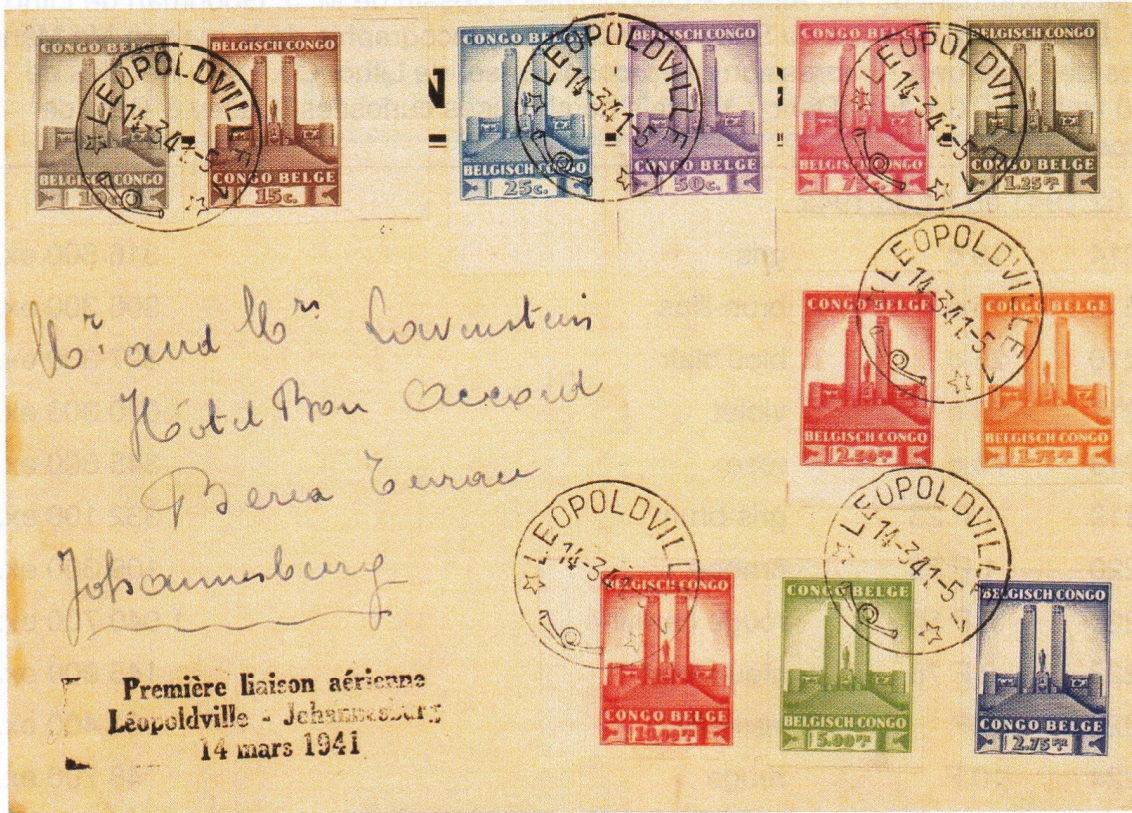 CONGO BELGE
BELGISCH CONGO
10c.
BELGISCH CONGO
CONGO BELGE
15c.
LEOPOLDVILLE
14-3-41-5
1
CONGO BELGE
BELGISCH CONGO
25c.
BELGISCH CONGO
CONGO BELGE
50c.
LEOPOLDVILLE
14-3-41-5
1
CONGO BELGE
BELGISCH CONGO
75c.
BELGISCH CONGO
CONGO BELGE
1.25 Fr
LEOPOLDVILLE
14-3-41-5
1
LEOPOLDVILLE
14-3-41-5
1
CONGO BELGE
BELGISCH CONGO
2.50 Fr
BELGISCH CONGO
CONGO BELGE
1.75 Fr
Mr and Mrs Lavenstein
Hôtel Bon Accord
Berea
Johannesburg
LEOPOLDVILLE
14-3-
1
BELGISCH CONGO
CONGO BELGE
10.00 Fr
LEOPOLDVILLE
14-3-41-5
1
CONGO BELGE
BELGISCH CONGO
5.00 Fr
BELGISCH CONGO
CONGO BELGE
2.75 Fr
Première liaison aérienne
Léopoldville - Johannesburg
14 mars 1941